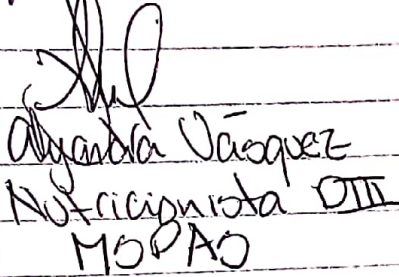 Alejandra Vásquez
Nutricionista DIII
MSPAS